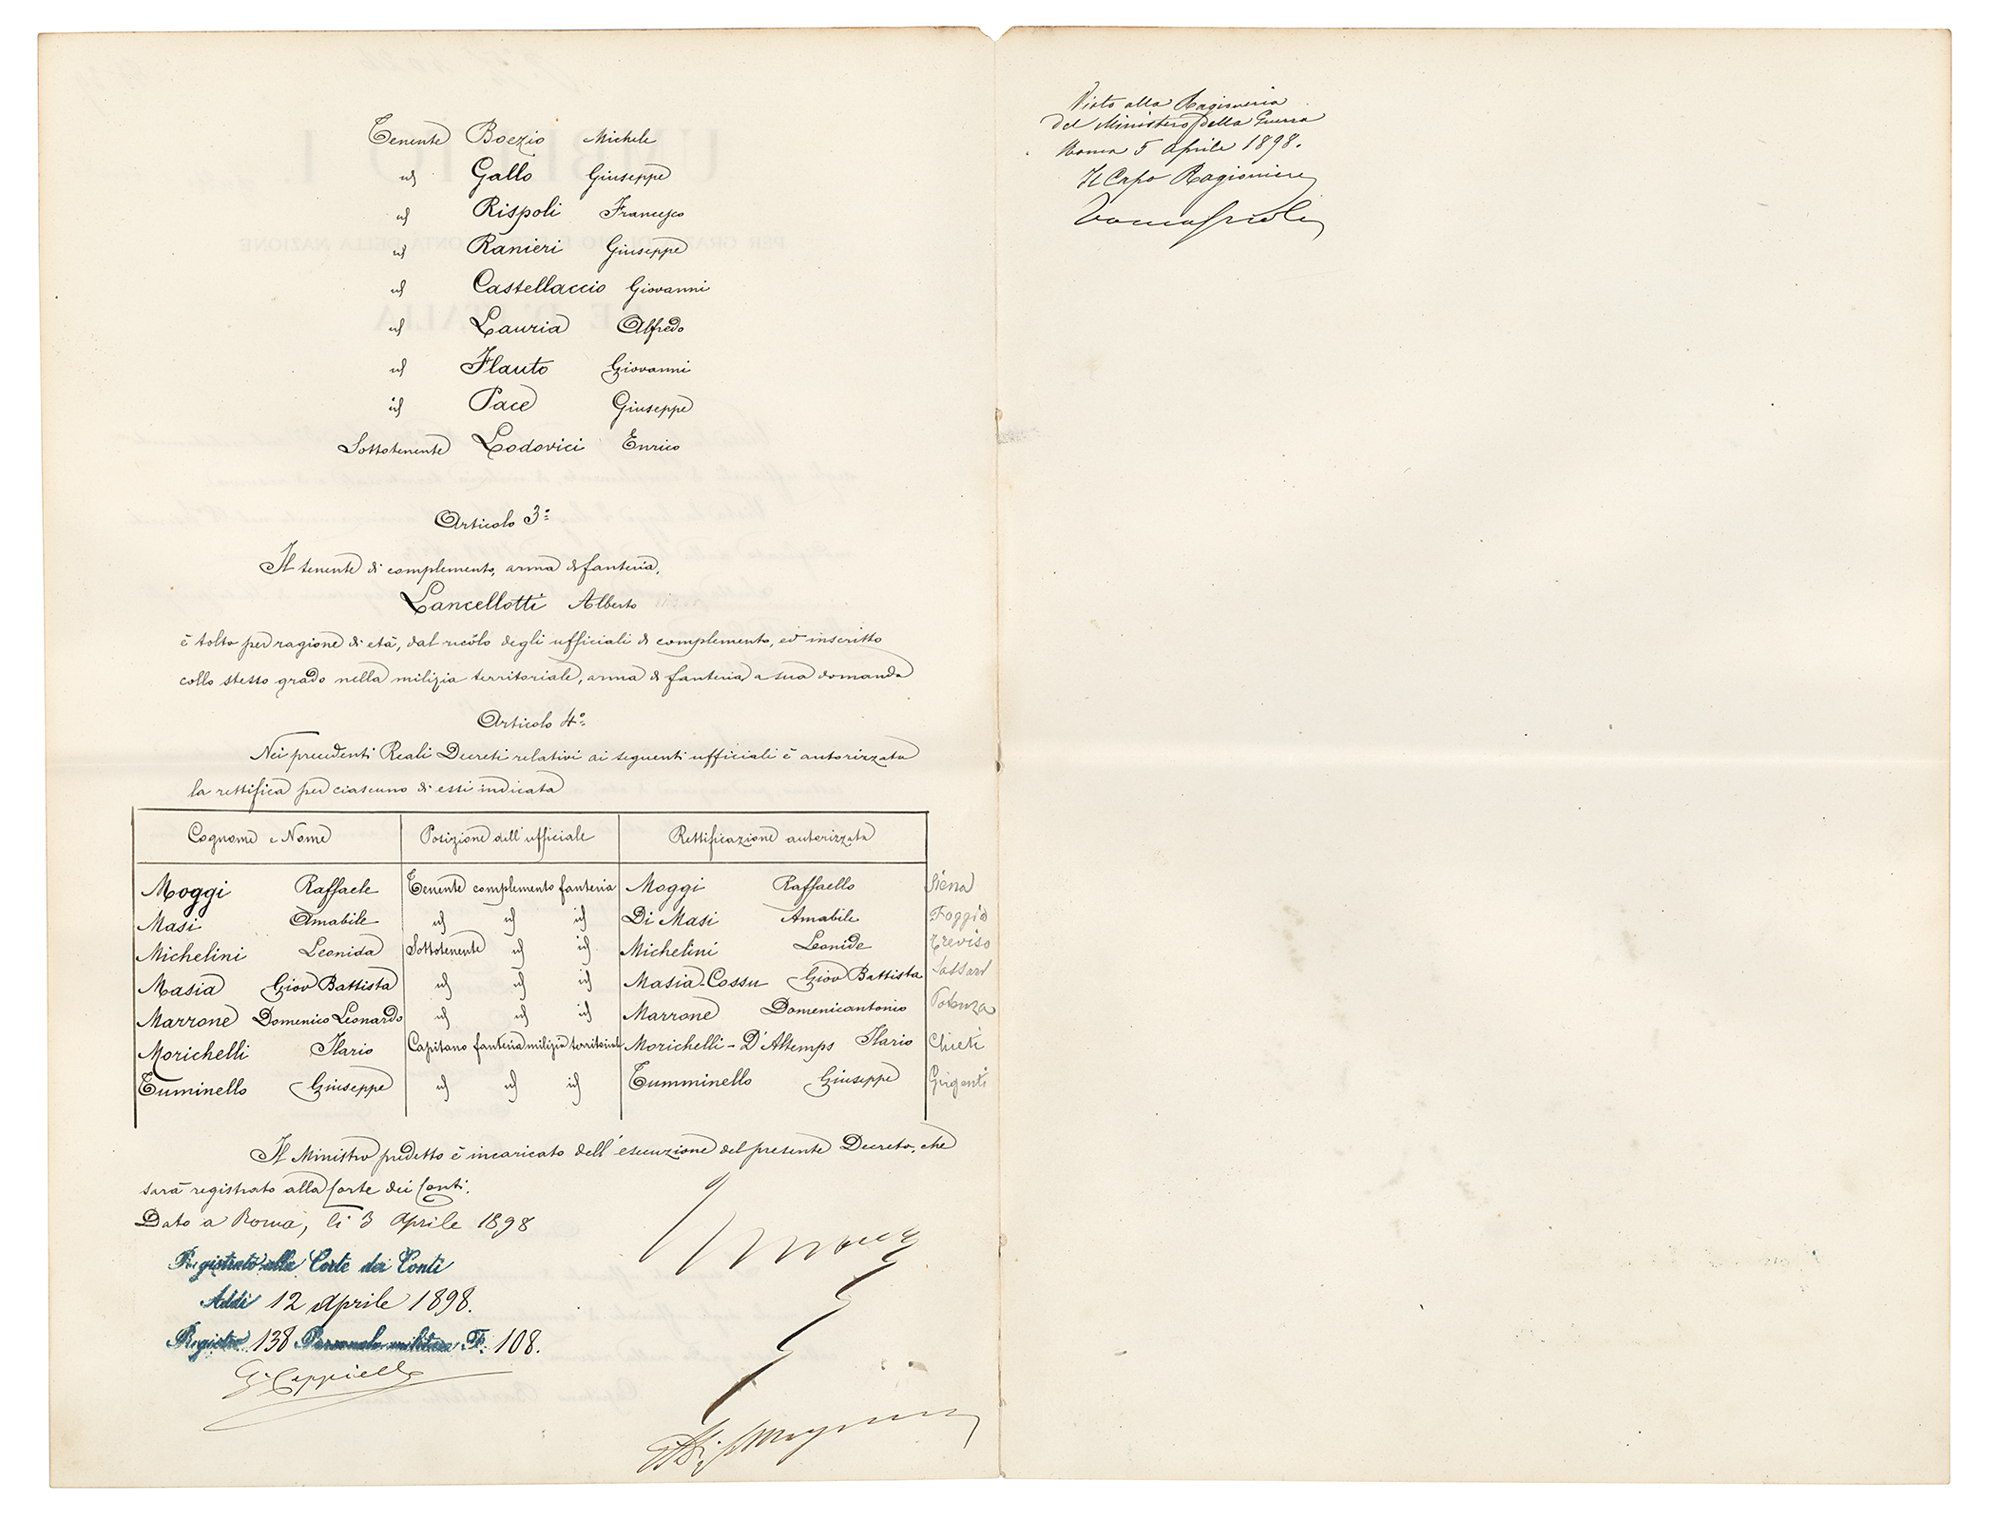 Tenente Boezio Michele
id Gallo Giuseppe
id Rispoli Francesco
id Ranieri Giuseppe
id Castellaccio Giovanni
id Lauria Alfredo
id Flauto Giovanni
id Pace Giuseppe
Sottotenente Lodovici Enrico
Articolo 3º
Il tenente di complemento, arma di fanteria,
Lancellotti Alberto
è tolto per ragione di età, dal ruolo degli ufficiali di complemento, ed inscritto
collo stesso grado nella milizia territoriale, arma di fanteria, a sua domanda
Articolo 4º
Nei precedenti Reali Decreti relativi ai seguenti ufficiali è autorizzata
la rettifica per ciascuno di essi indicata
Cognome e Nome Posizione dell'ufficiale Rettificazione autorizzata
Moggi Raffaele Tenente complemento fanteria Moggi Raffaello Siena
Masi Amabile id id id Di Masi Amabile Foggia
Michelini Leonida Sottotenente id id Michelini Leonide Treviso
Masia Giov Battista id id id Masia-Cossu Giov Battista Sassari
Marrone Domenico Leonardo id id id Marrone Domenicantonio Potenza
Morichelli Ilario Capitano fanteria milizia territoriale Morichelli-D'Altemps Ilario Chieti
Tuminello Giuseppe id id id Tumminello Giuseppe Girgenti
Il Ministro predetto è incaricato dell'esecuzione del presente Decreto, che
sarà registrato alla Corte dei Conti.
Dato a Roma, li 3 Aprile 1898
Registrato alla Corte dei Conti
Addì 12 Aprile 1898.
Registro 138 Personale militare F. 108.
Visto alla Ragioneria
del Ministero della Guerra
Roma 5 Aprile 1898.
Il Capo Ragioniere